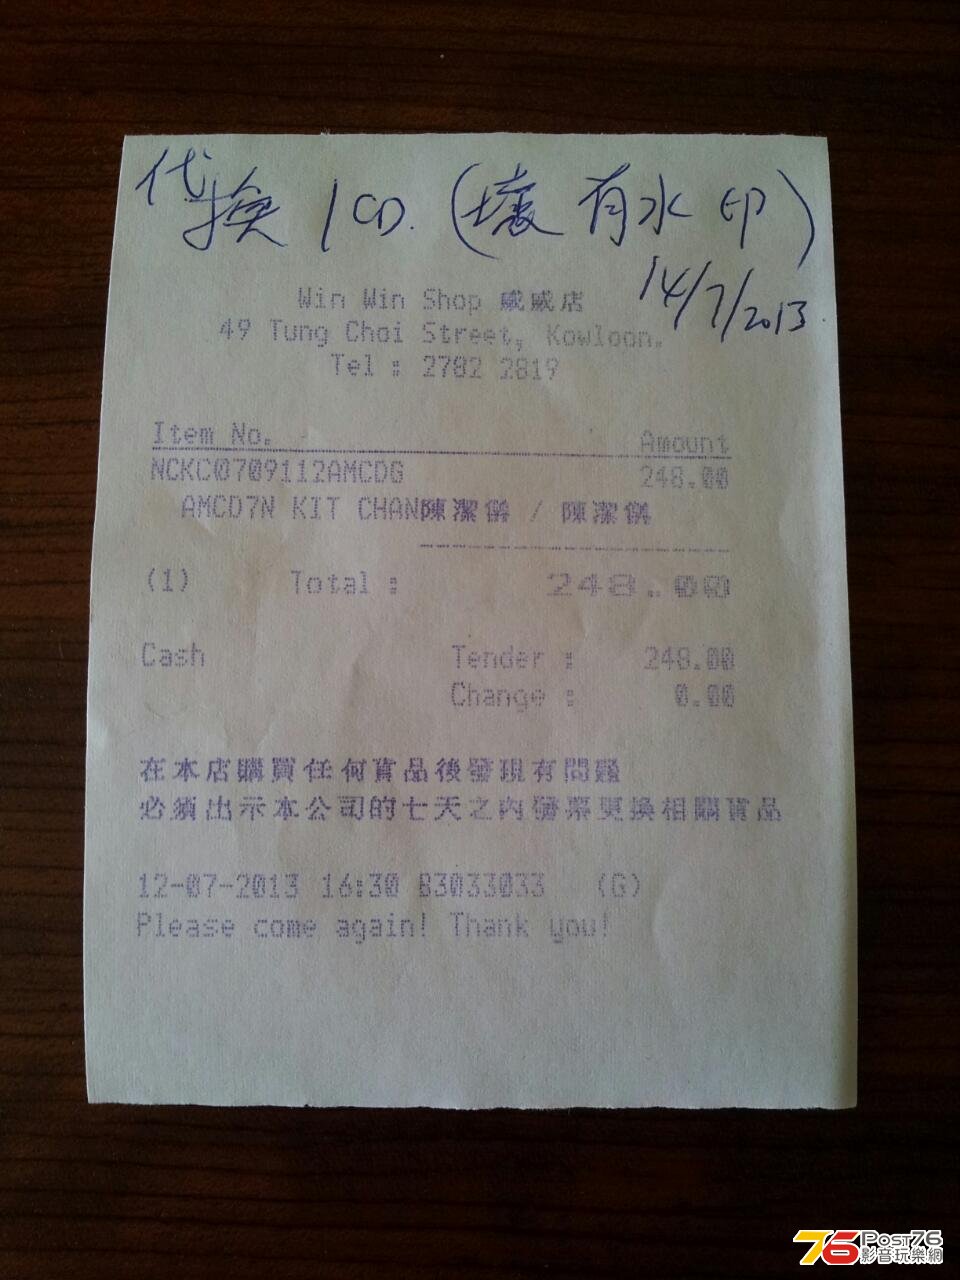 代換 1 CD. (壞 有水印)
14/7/2013.
Win Win Shop 威威店
49 Tung Choi Street, Kowloon.
Tel : 2782 2819
Item No. Amount
NCKC0709112AMCDG 248.00
AMCD7N KIT CHAN陳潔儀 / 陳潔儀
(1) Total : 248.00
Cash Tender : 248.00
Change : 0.00
在本店購買任何貨品後發現有問題
必須出示本公司的七天之內發票更換相關貨品
12-07-2013 16:30 B3033033 (G)
Please come again! Thank you!
76 Post76
影音玩樂網